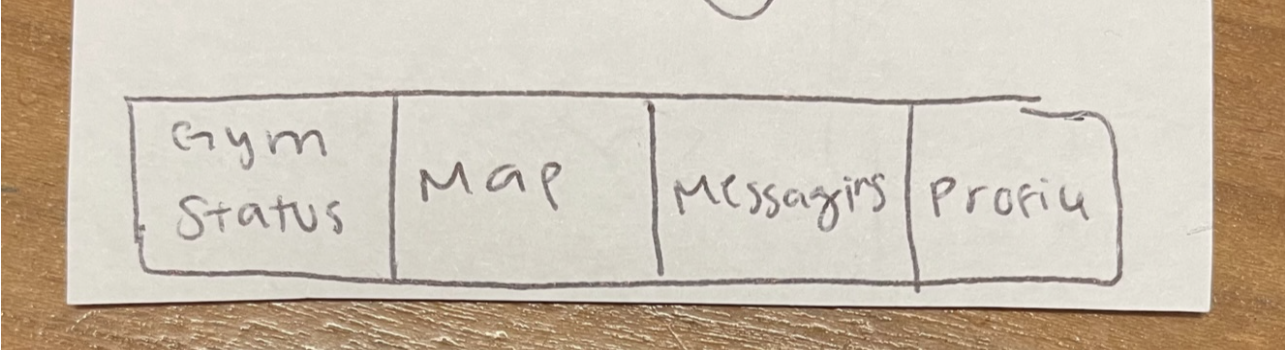 Gym
Status
Map
Messaging
Profile